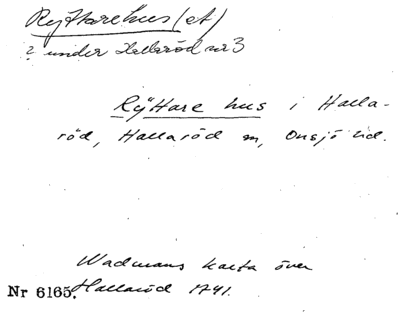 Ryttarehus (et)
? under Hallaröd nr 3
Rÿttare hus i Halla-
röd, Hallaröd sn, Onsjö hd.
Wadmans karta över
Nr 6165. Hallaröd 1741.